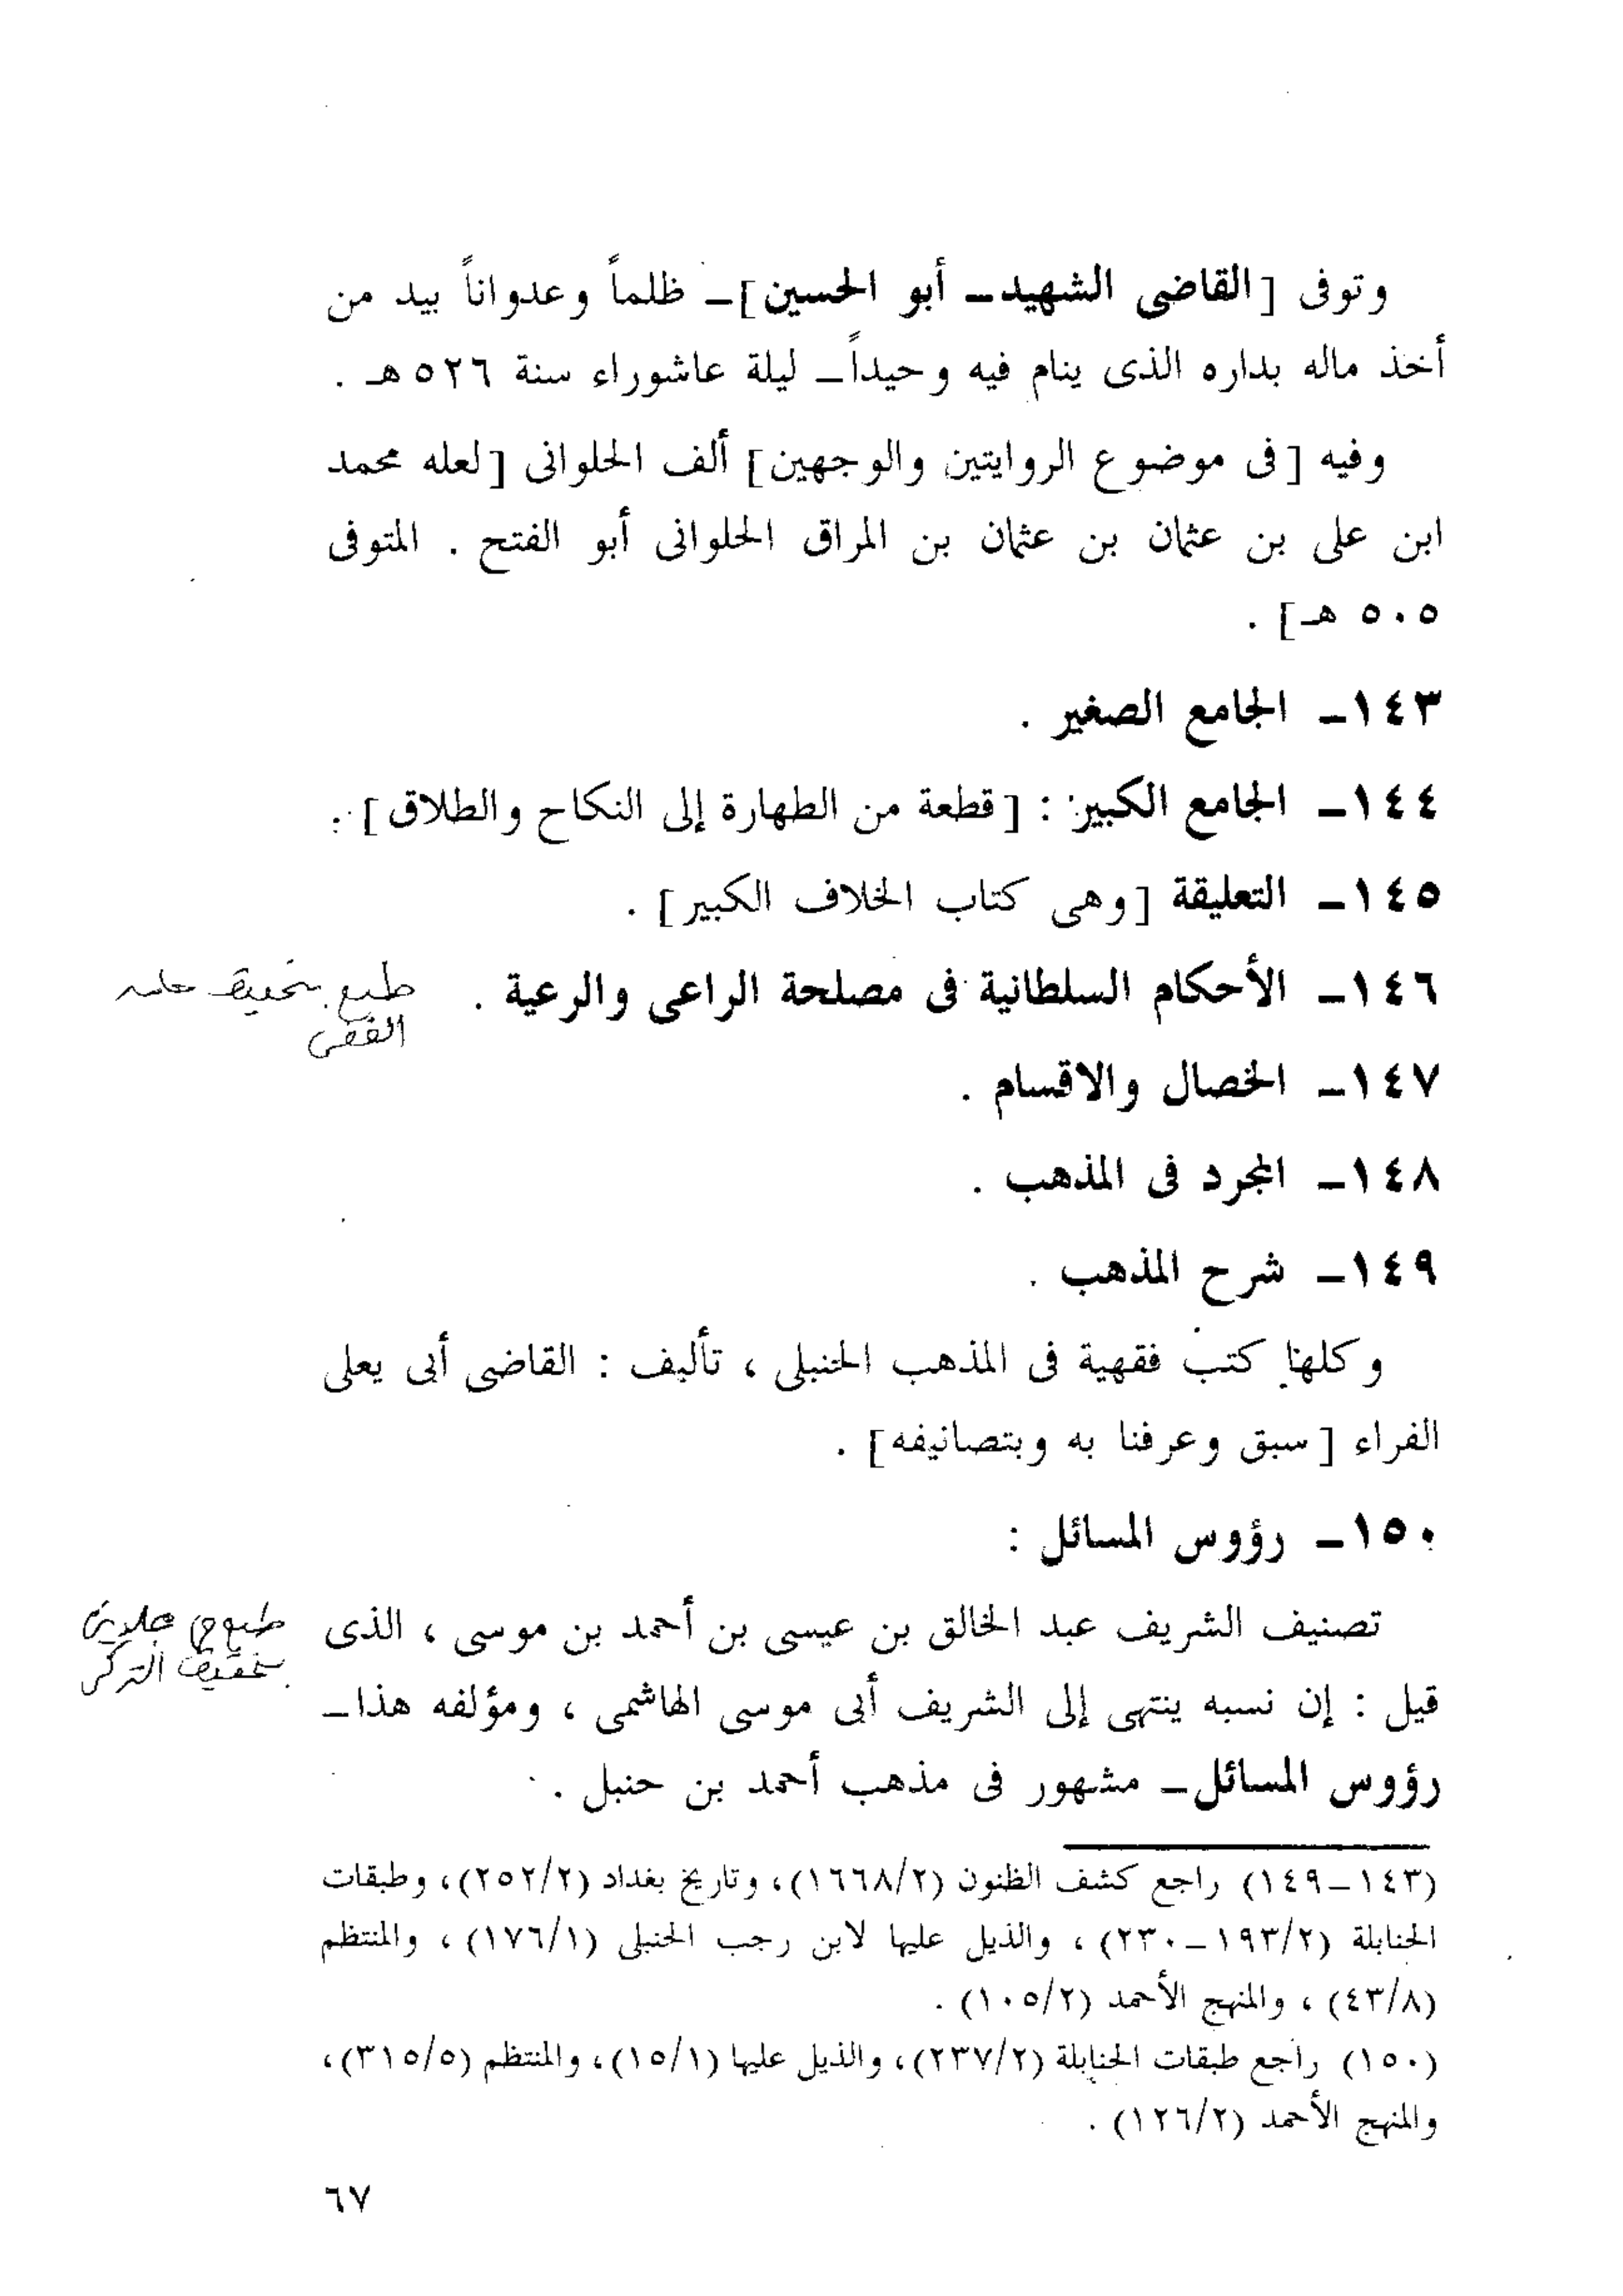 وتوفى [القاضى الشهيد ــ أبو الحسين] ــ ظلماً وعدواناً بيد من
أخذ ماله بداره الذى ينام فيه وحيداً ــ ليلة عاشوراء سنة ٥٢٦هـ .
وفيه [فى موضوع الروايتين والوجهين] ألف الحلوانى [لعله محمد
ابن على بن عثمان بن عثمان بن المراق الحلوانى أبو الفتح . المتوفى
٥٠٥ هـ] .
١٤٣ــ الجامع الصغير .
١٤٤ــ الجامع الكبير : [قطعة من الطهارة إلى النكاح والطلاق] .
١٤٥ــ التعليقة [وهى كتاب الخلاف الكبير] .
١٤٦ــ الأحكام السلطانية فى مصلحة الراعى والرعية .
طبع بتحقيق حامد
الفقى
١٤٧ــ الخصال والاقسام .
١٤٨ــ المجرد فى المذهب .
١٤٩ــ شرح المذهب .
وكلها كتب فقهية فى المذهب الحنبلى ، تأليف : القاضى أبى يعلى
الفراء [سبق وعرفنا به وبتصانيفه] .
١٥٠ــ رؤوس المسائل :
تصنيف الشريف عبد الخالق بن عيسى بن أحمد بن موسى ، الذى
طبع
بتحقيق التركى
قيل : إن نسبه ينتهى إلى الشريف أبى موسى الهاشمى ، ومؤلفه هذا ــ
رؤوس المسائل ــ مشهور فى مذهب أحمد بن حنبل .
(١٤٣ــ١٤٩) راجع كشف الظنون (١٦٦٨/٢)، وتاريخ بغداد (٢٥٢/٢)، وطبقات
الحنابلة (١٩٣/٢ــ٢٣٠) ، والذيل عليها لابن رجب الحنبلى (١٧٦/١) ، والمنتظم
(٤٣/٨) ، والمنهج الأحمد (١٠٥/٢) .
(١٥٠) راجع طبقات الحنابلة (٢٣٧/٢)، والذيل عليها (١٥/١)، والمنتظم (٣١٥/٥)،
والمنهج الأحمد (١٢٦/٢) .
٦٧